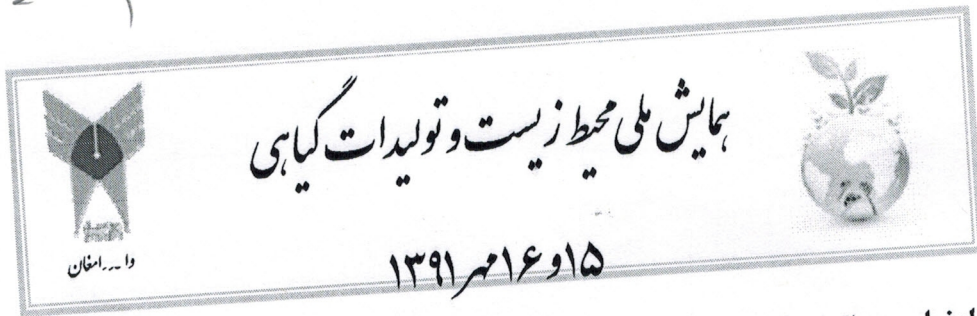 همایش ملی محیط زیست و تولیدات گیاهی
۱۵ و ۱۶ مهر ۱۳۹۱
دامغان